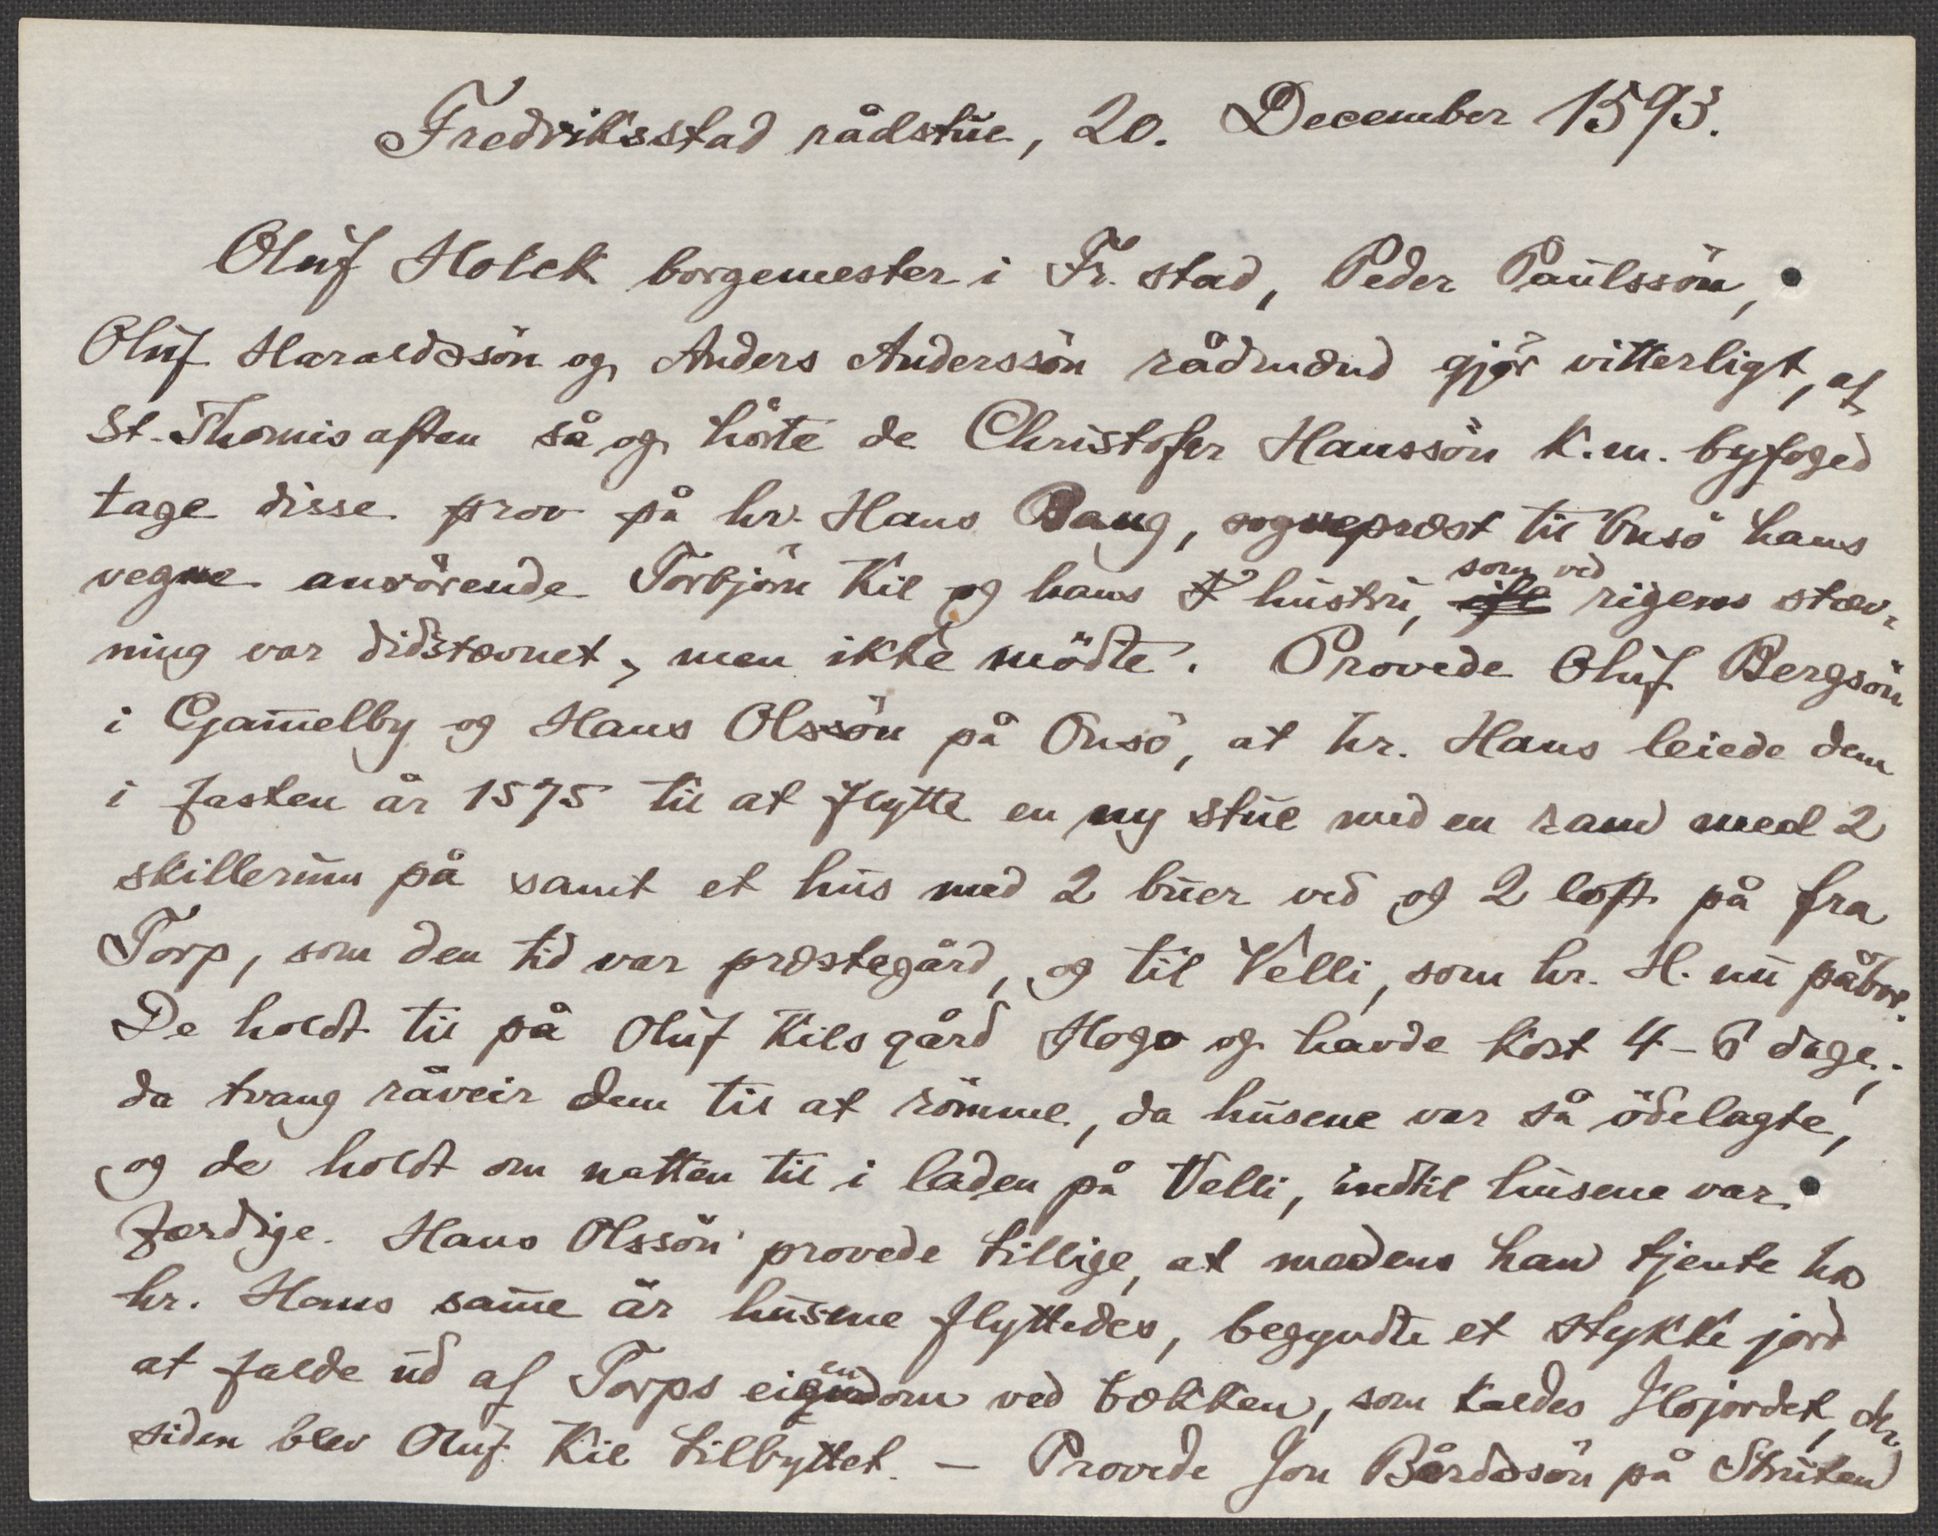 Fredriksstad rådstue, 20. December 1593.
Oluf Holck borgemester i Fr. stad, Peder Paulssön,
Oluf Haraldssön og Anders Anderssön rådmænd gjør vitterligt, at
St. Thomis aften så og hörte de Christofer Hanssön k. m. byfoged
tage disse prov på hr. Hans Bang, sogneprest til Onsö hans
vegne anrörende Torbjörn Kil og hans hustru, som ved rigens stæv-
ning var didstævnet, men ikke mödte. Provede Oluf Bergsön
i Gam̄elby og Hans Olssön på Onsö, at hr. Hans leiede dem
i fasten år 1575 til at flytte en ny stue med en ram med 2
skillerum på samt et hus med 2 buer ved og 2 loft på fra
Torp, som den tid var præstegård, og til Velli, som hr. H. nu påbor.
De holdt til på Oluf Kils gård Hogo og havde kost 4-6 dage;
da tvang råveir dem til at römme, da husene var så ödelagte,
og de holdt om natten til i laden på Velli, indtil husene var
færdige. Hans Olssön provede tillige, at medens han tjente hos
hr. Hans sam̄e år husene flyttedes, begyndte et stykke jord
at falde ud af Torps eigendom ved bækken, som kaldes Flojordet, der
siden blev Oluf Kil tilbyttet. — Provede Jon Bårdssön på Struten